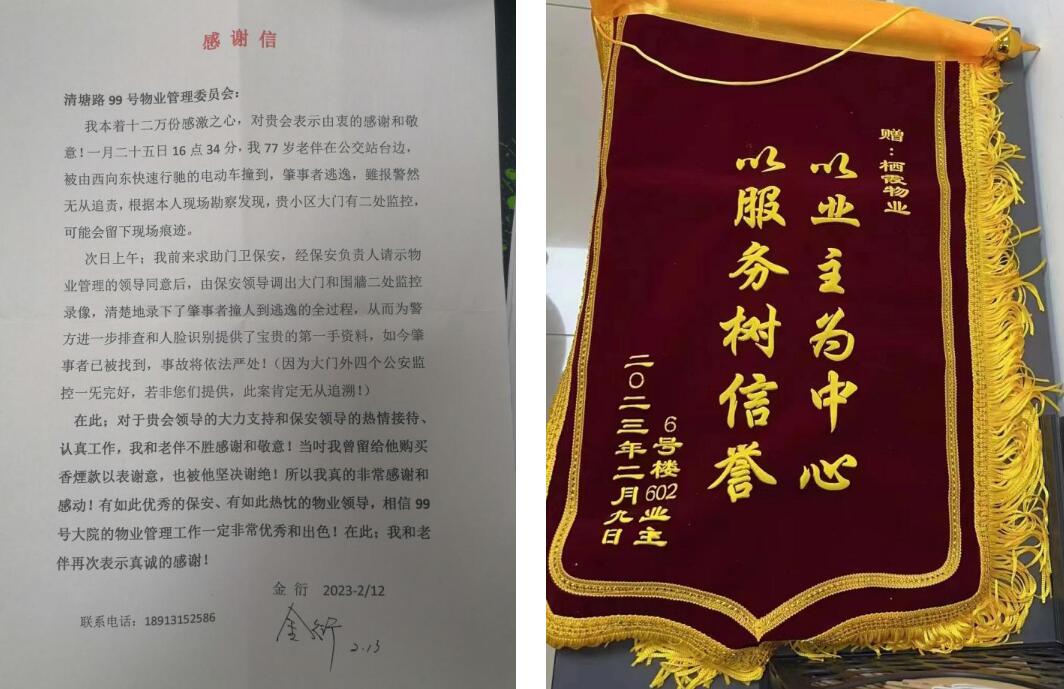 感谢信
清塘路99号物业管理委员会：
我本着十二万份感激之心，对贵会表示由衷的感谢和敬
意！一月二十五日16点34分，我77岁老伴在公交站台边，
被由西向东快速行驰的电动车撞到，肇事者逃逸，雖报警然
无从追责，根据本人现场勘察发现，贵小区大门有二处监控，
可能会留下现场痕迹。
次日上午；我前来求助门卫保安，经保安负责人请示物
业管理的领导同意后，由保安领导调出大门和围牆二处监控
录像，清楚地录下了肇事者撞人到逃逸的全过程，从而为警
方进一步排查和人脸识别提供了宝贵的第一手资料，如今肇
事者已被找到，事故将依法严处！（因为大门外四个公安监
控一旡完好，若非您们提供，此案肯定无从追溯！）
在此；对于贵会领导的大力支持和保安领导的热情接待、
认真工作，我和老伴不胜感谢和敬意！当时我曾留给他购买
香煙款以表谢意，也被他坚决谢绝！所以我真的非常感谢和
感动！有如此优秀的保安、有如此热忱的物业领导，相信99
号大院的物业管理工作一定非常优秀和出色！在此；我和老
伴再次表示真诚的感谢！
金 衍 2023-2/12
联系电话：18913152586
金衍
2.13
赠：栖霞物业
以业主为中心
以服务树信誉
6号楼602业主
二〇二三年二月九日